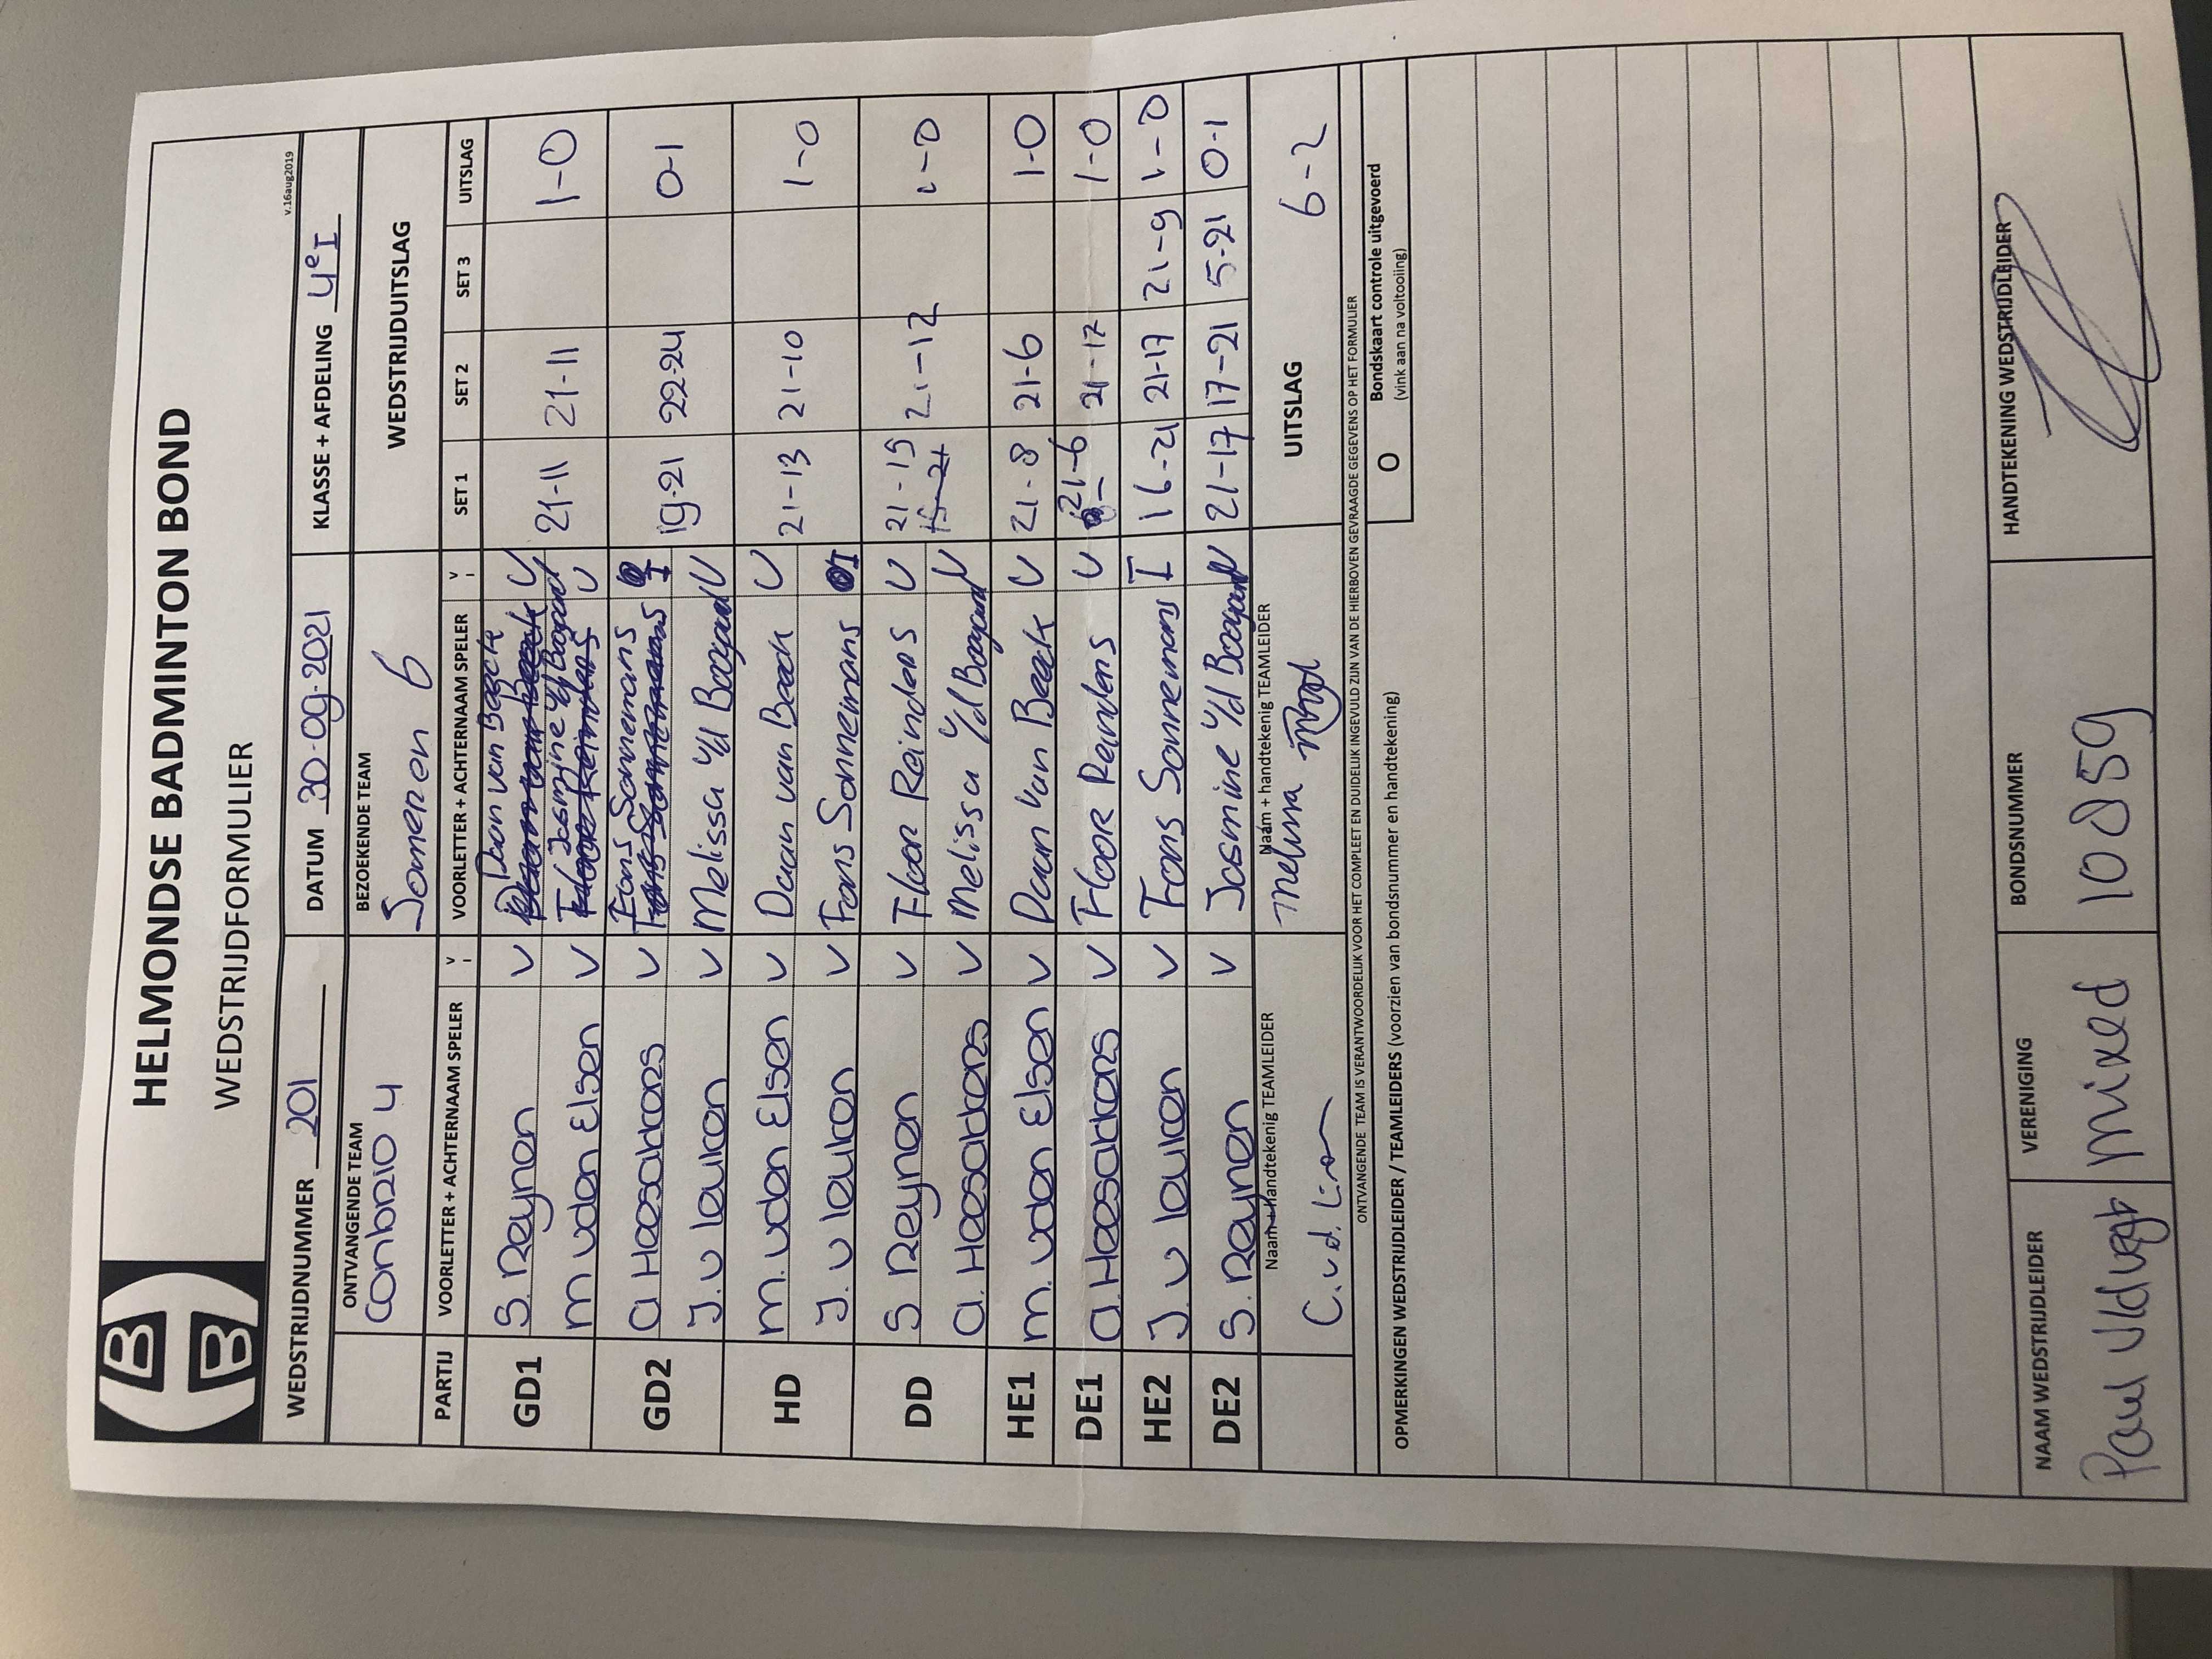 HELMONDSE BADMINTON BOND
WEDSTRIJDFORMULIER
v.16aug2019
WEDSTRIJDNUMMER 201 DATUM 30-09-2021 KLASSE + AFDELING 4e I
ONTVANGENDE TEAM BEZOEKENDE TEAM WEDSTRIJDUITSLAG
Conbrio 4 Someren 6
PARTIJ VOORLETTER + ACHTERNAAM SPELER V I VOORLETTER + ACHTERNAAM SPELER V I SET 1 SET 2 SET 3 UITSLAG
GD1 S. Reynen V Daan van Beeck V 21-11 21-11 1-0
M vden Elsen V Jasmine v/d Boogaard V
GD2 a Heesakkers V Fons Sonnemans I 19-21 22-24 0-1
J. v Leuken V Melissa v/d Boogaard V
HD M. vden Elsen V Daan van Beeck V 21-13 21-10 1-0
J. v Leuken V Fons Sonnemans I
DD S Reynen V Floor Reinders V 21-15 21-12 1-0
a. Heesakkers V Melissa v/d Boogaard V 15-21
HE1 M. vden Elsen V Daan van Beeck V 21-8 21-6 1-0
DE1 a. Heesakkers V Floor Reinders V 21-6 21-17 1-0
HE2 J. v Leuken V Fons Sonnemans I 16-21 21-17 21-9 1-0
DE2 S. Reynen V Jasmine v/d Boogaard V 21-17 17-21 5-21 0-1
Naam + handtekenig TEAMLEIDER Naam + handtekenig TEAMLEIDER UITSLAG 6-2
C. v.d. Melissa
ONTVANGENDE TEAM IS VERANTWOORDELIJK VOOR HET COMPLEET EN DUIDELIJK INGEVULD ZIJN VAN DE HIERBOVEN GEVRAAGDE GEGEVENS OP HET FORMULIER
OPMERKINGEN WEDSTRIJDLEIDER / TEAMLEIDERS (voorzien van bondsnummer en handtekening) O Bondskaart controle uitgevoerd
(vink aan na voltooiing)
NAAM WEDSTRIJDLEIDER VERENIGING BONDSNUMMER HANDTEKENING WEDSTRIJDLEIDER
Paul mixed 10059